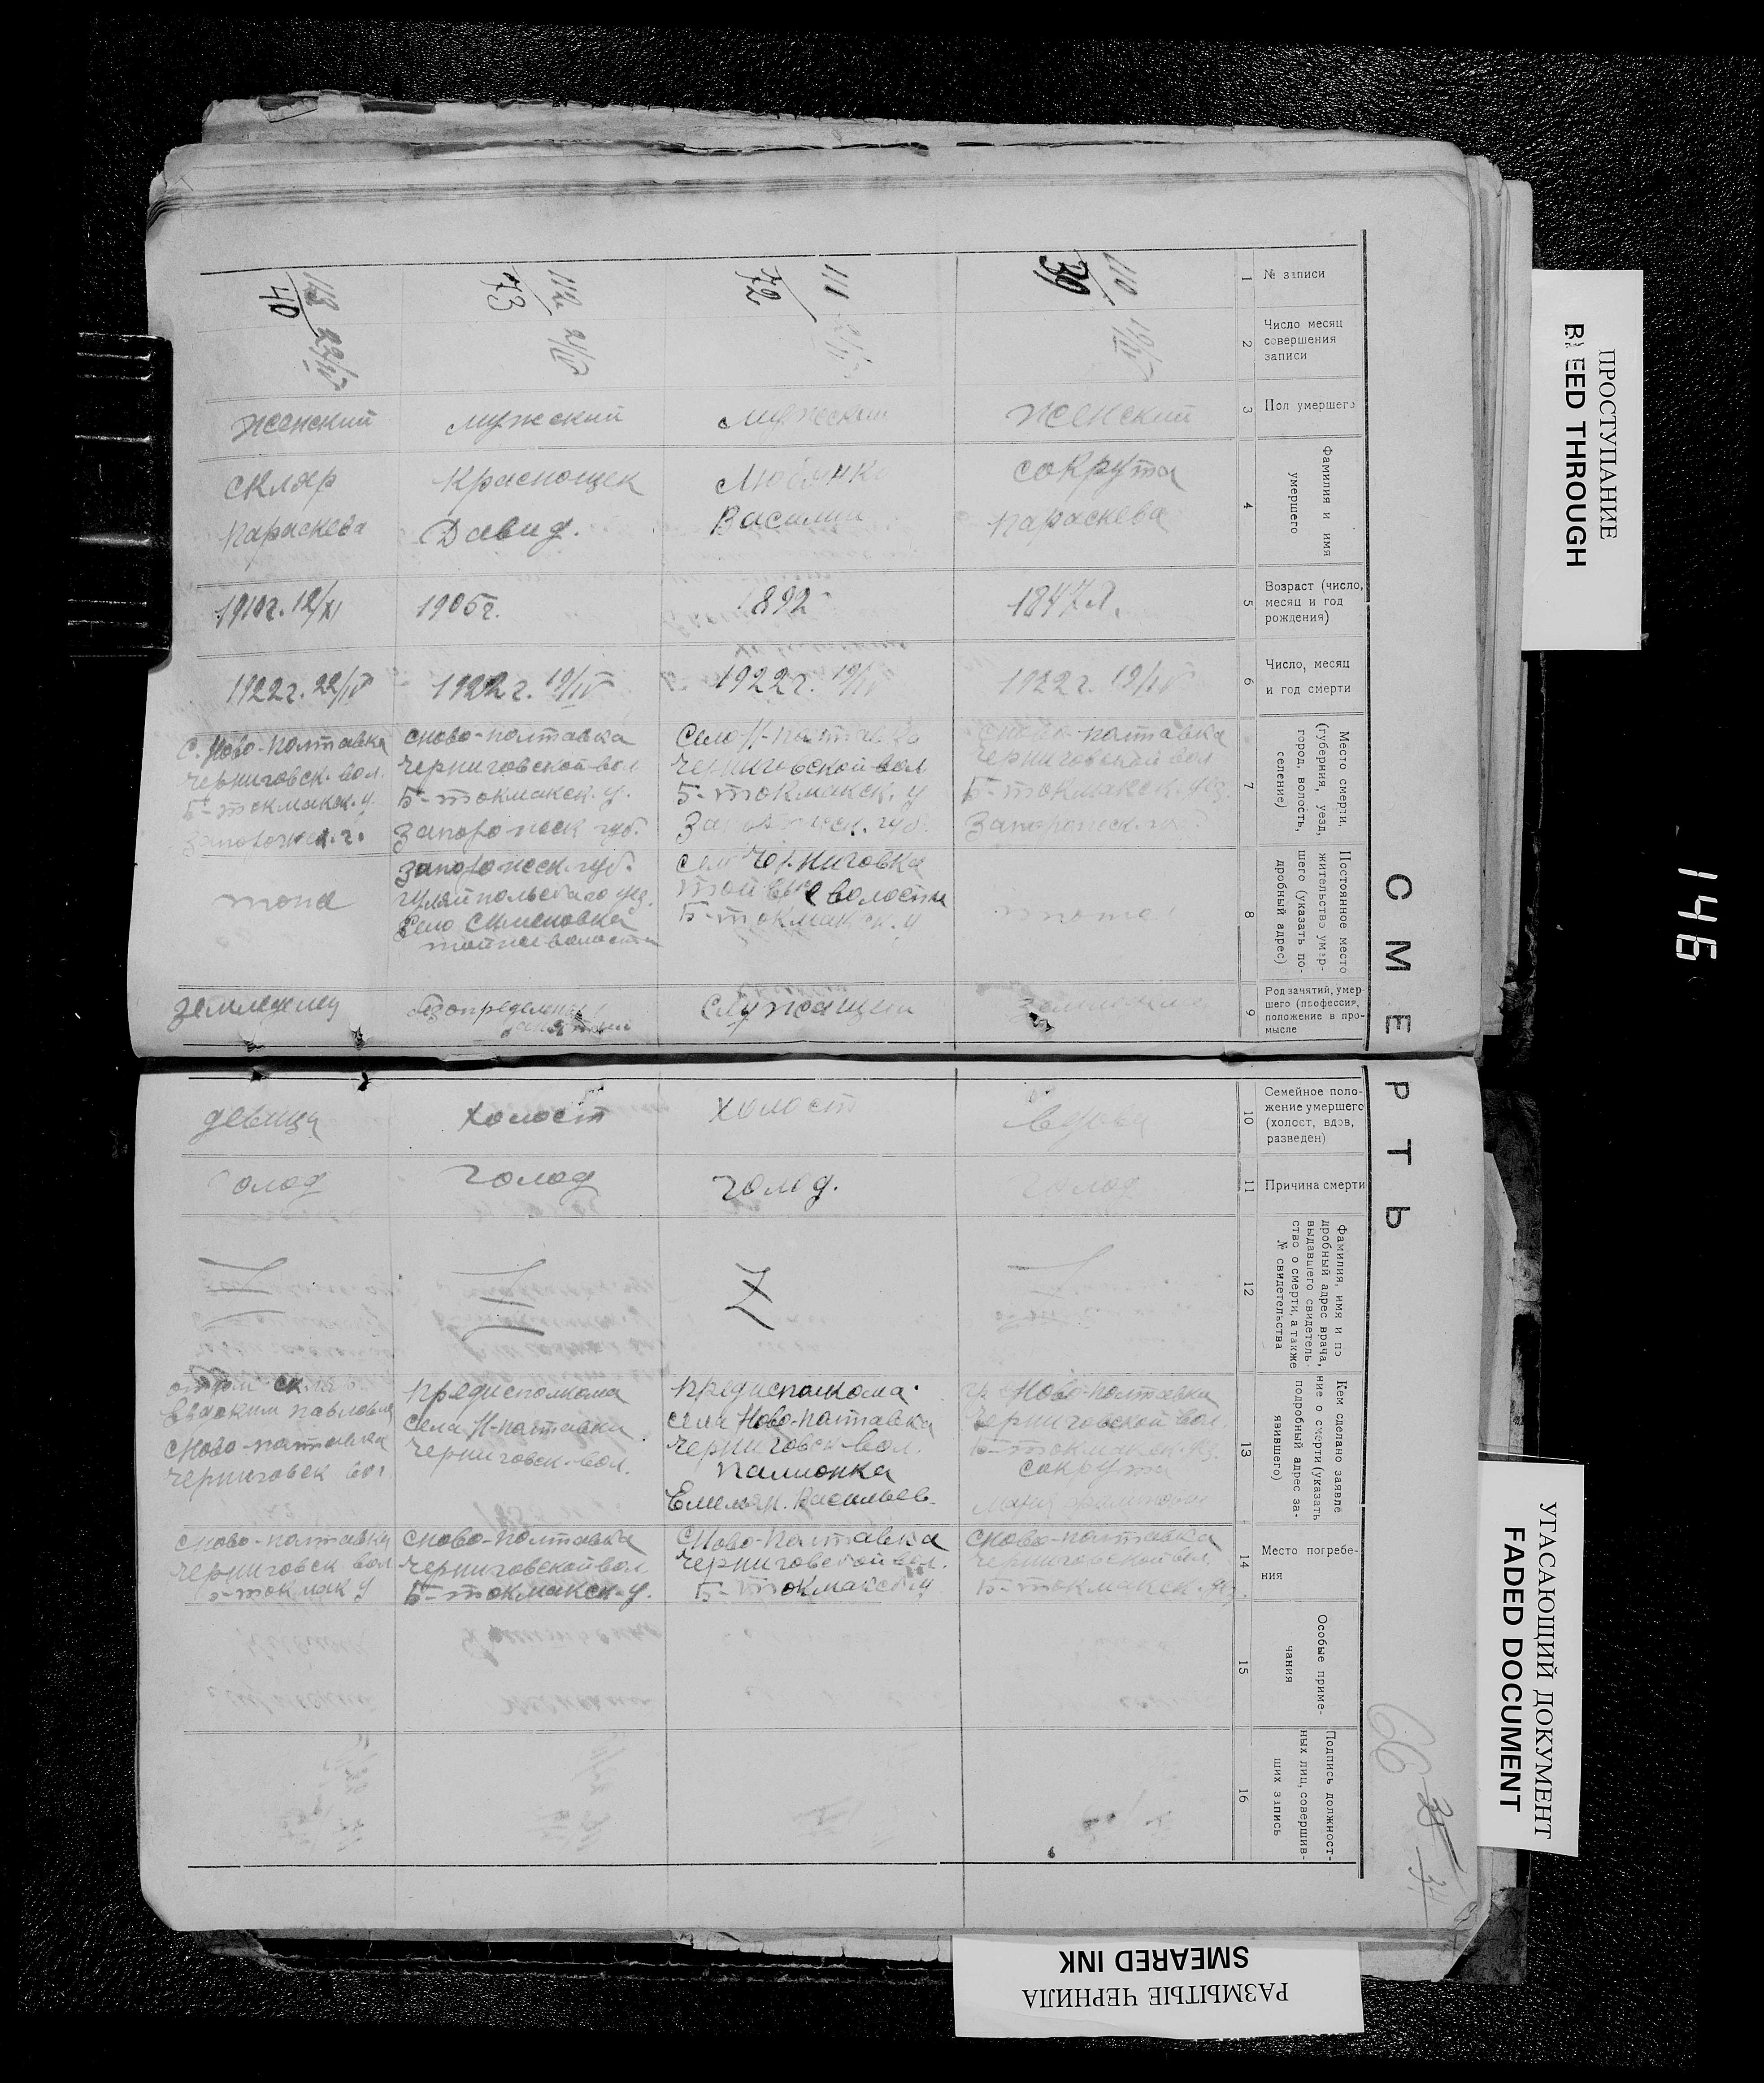 ПРОСТУПАНИЕ
BLEED THROUGH
146
СМЕРТЬ
1
№ записи
2
Число месяц
совершения
записи
3
Пол умершего
4
Фамилия и имя
умершего
5
Возраст (число,
месяц и год
рождения)
6
Число, месяц
и год смерти
7
Место смерти,
(губерния, уезд,
город, волость,
селение)
8
Постоянное место
жительство умер-
шего (указать по-
дробный адрес)
9
Род занятий, умер-
шего (профессия,
положение в про-
мысле
10
Семейное поло-
жение умершего
(холост, вдов,
разведен)
11
Причина смерти
12
Фамилия, имя и по
дробный адрес врача,
выдавшего свидетель-
ство о смерти, а также
№ свидетельства
13
Кем сделано заявле
ние о смерти (указать
подробный адрес за-
явившего)
14
Место погребе-
ния
15
Особые приме-
чания
16
Подпись должност-
ных лиц, совершив-
ших запись
110
39
19/IV
женский
Сокрута
Параскева
1847 г.
1922 г. 19/IV
полтавка
Черниговской вол
Б-токмакск. уез.
Запорожск.
вдова
голод
Ново-полтавка
Черниговской вол.
Б-токмакск. уз.
Сокрута
Мария
с ново-полтавка
Черниговской вол.
Б-токмакск. уз
111
72
мужской
Василий
1892
1922 г. 19/IV
Село Н-полтавка
Черниговской вол
Б-токмакск. у
Запорожск. губ.
село Черниговка
той же волости
Б-токмакск. у
Служащий
холост
голод.
предисполкома
села Ново-полтавка
Черниговск. вол.
Палионка
Емельян. Васильев.
с Ново-Полтавка
Черниговской вол.
Б-токмакск. у
112
73
21/IV
мужской
Краснощек
Давид.
1905 г.
1922 г. 19/IV
с ново-полтавка
Черниговской вол
Б-токмакск. у.
Запорожск губ.
Запорожск. губ.
Гуляйпольского уез.
Село Семеновка
той же волости
без определен.
занятий
холост
голод
предисполкома
села Н-полтавки
Черниговск. вол.
с ново-полтавка
Черниговской вол.
Б-токмакск. у.
113
40
22/IV
женский
Скляр
Параскева
1910 г. 12/XI
1922 г. 22/IV
с. Ново-полтавка
Черниговск. вол.
Б-токмакск. у.
Запорожск. г.
тоже
земледелец
девица
голод
отцом Скляр
Евдоким Павлович
с Ново-полтавка
Черниговск вол
с Ново-полтавка
Черниговск вол
Б-токмак у
66
УГАСАЮЩИЙ ДОКУМЕНТ
FADED DOCUMENT
РАЗМЫТЫЕ ЧЕРНИЛА
SMEARED INK